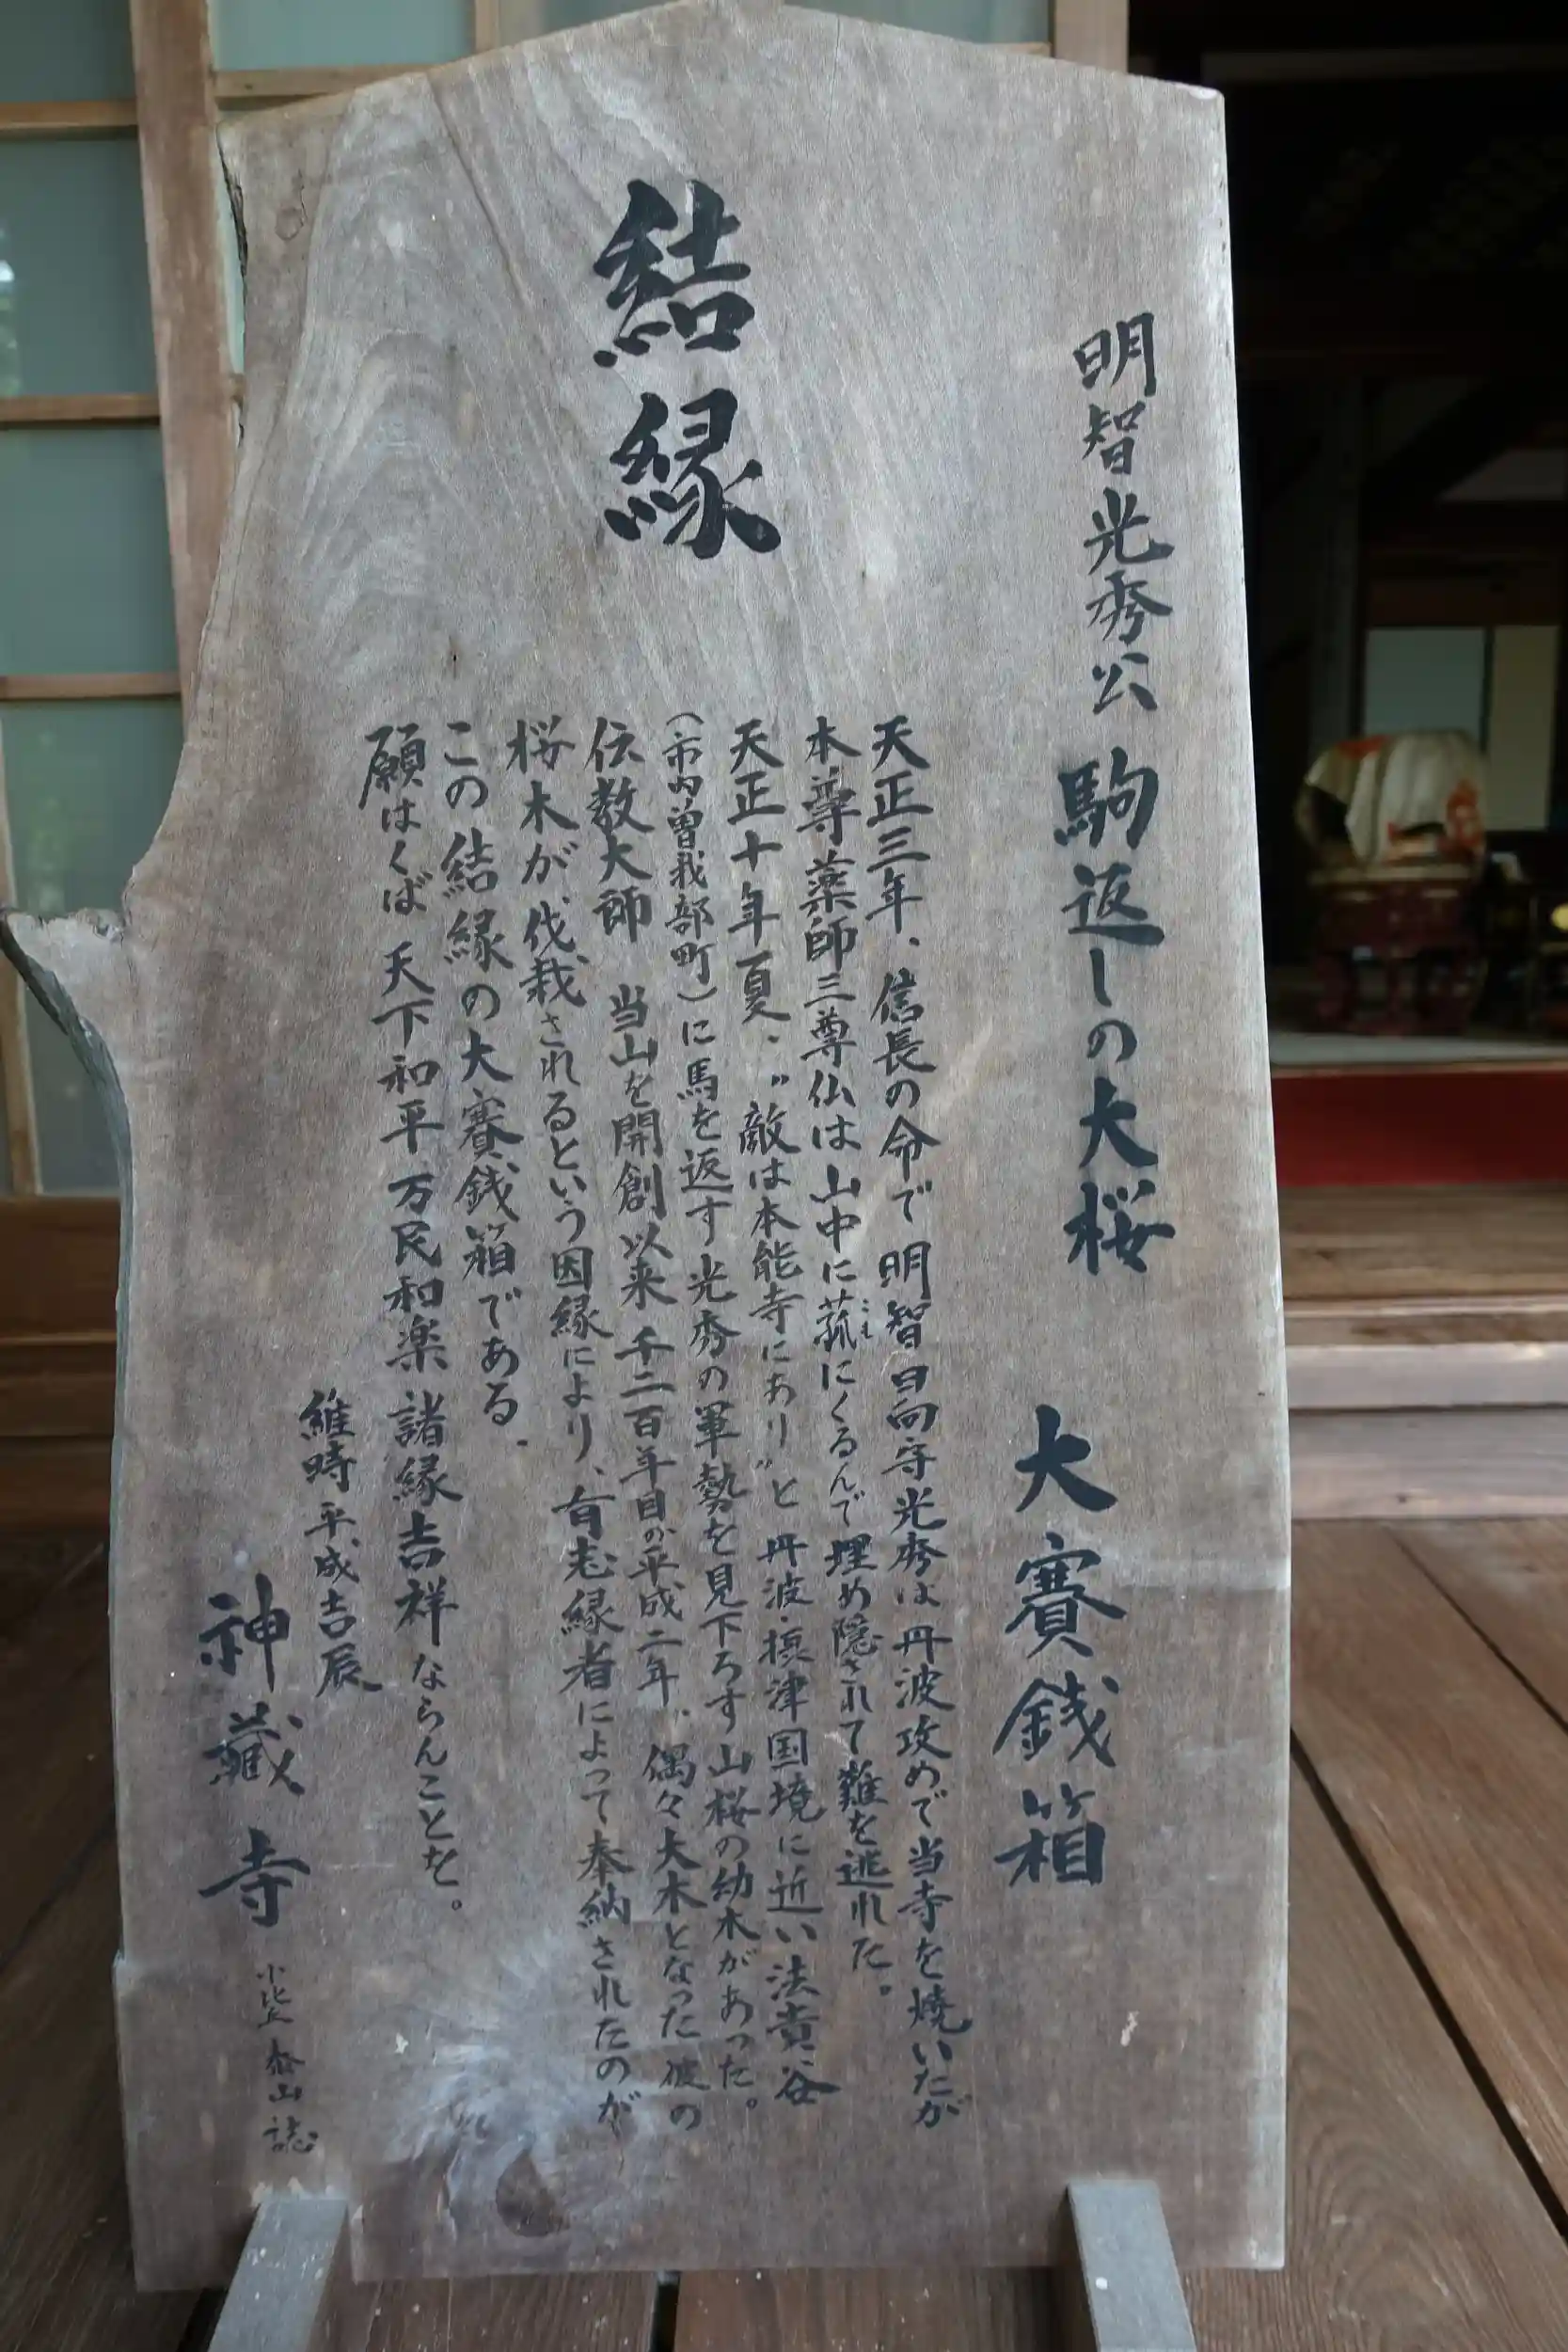 明智光秀公 駒返しの大桜
大賽銭箱
結縁
天正三年、信長の命で明智日向守光秀は丹波攻めで当寺を焼いたが
本尊薬師三尊仏は山中に菰にくるんで埋め隠されて難を逃れた。
こも
天正十年夏、〝敵は本能寺にあり〟と丹波・摂津国境に近い法貴谷
(市内曽我部町)に馬を返す光秀の軍勢を見下ろす山桜の幼木があった。
伝教大師 当山を開創以来 千二百年目が平成二年、偶々大木となった彼の
桜木が、伐栽されるという因縁により、有志縁者によって奉納されたのが
この結縁の大賽銭箱である.
願はくば 天下和平 万民和楽 諸縁吉祥ならんことを。
維時 平成吉辰
神蔵寺
山誌